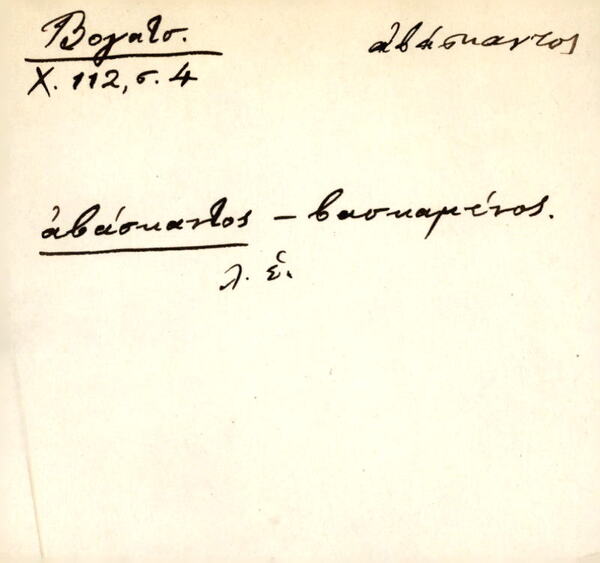 Βογατσ. ἀβάσκαντος
Χ. 112, σ. 4
ἀβάσκαντος – βασκαμένος.
λ. ἐ.